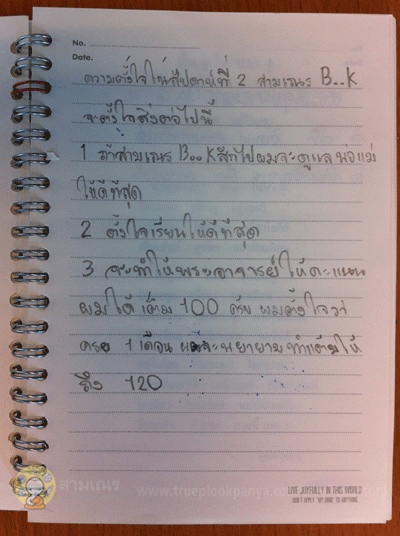 No.
Date.
ความตั้งใจในสัปดาห์ที่ 2 สามเณร B..k
จะตั้งใจสิ่งต่อไปนี้
1 ถ้าสามเณร B..kสึกไปผมจะดูแลพ่อแม่
ให้ดีที่สุด
2 ตั้งใจเรียนให้ดีที่สุด
3 จะทำให้พระอาจารย์ให้คะแนน
ผมได้เต็ม 100 ครับ ผมตั้งใจว่า
ครบ 1 เดือน ผมจะพยายามทำแต้มให้
ถึง 120
LIVE JOYFULLY IN THIS WORLD
DON'T APPLY "MY GOOD" TO ANYTHING
สามเณร
www.trueplookpanya.com